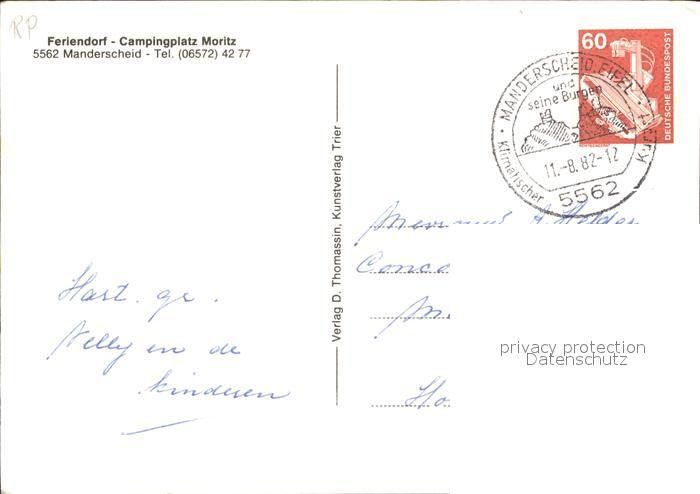 RP
Feriendorf - Campingplatz Moritz
5562 Manderscheid - Tel. (06572) 42 77
60
DEUTSCHE BUNDESPOST
MANDERSCHEID, EIFEL
und
seine Burgen
Klimatischer Kurort
11.-8.82-12
5562
Verlag D. Thomassin, Kunstverlag Trier
Hart. gr.
Nelly en de
kinderen
privacy protection
Datenschutz